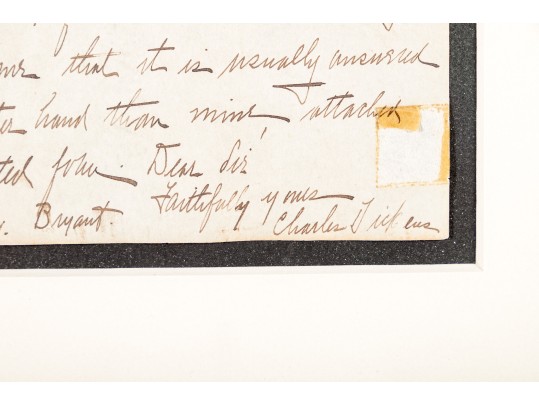 that it is usually answered
hand than mine, attached
Dear Sir,
Faithfully yours
Bryant. Charles Dickens